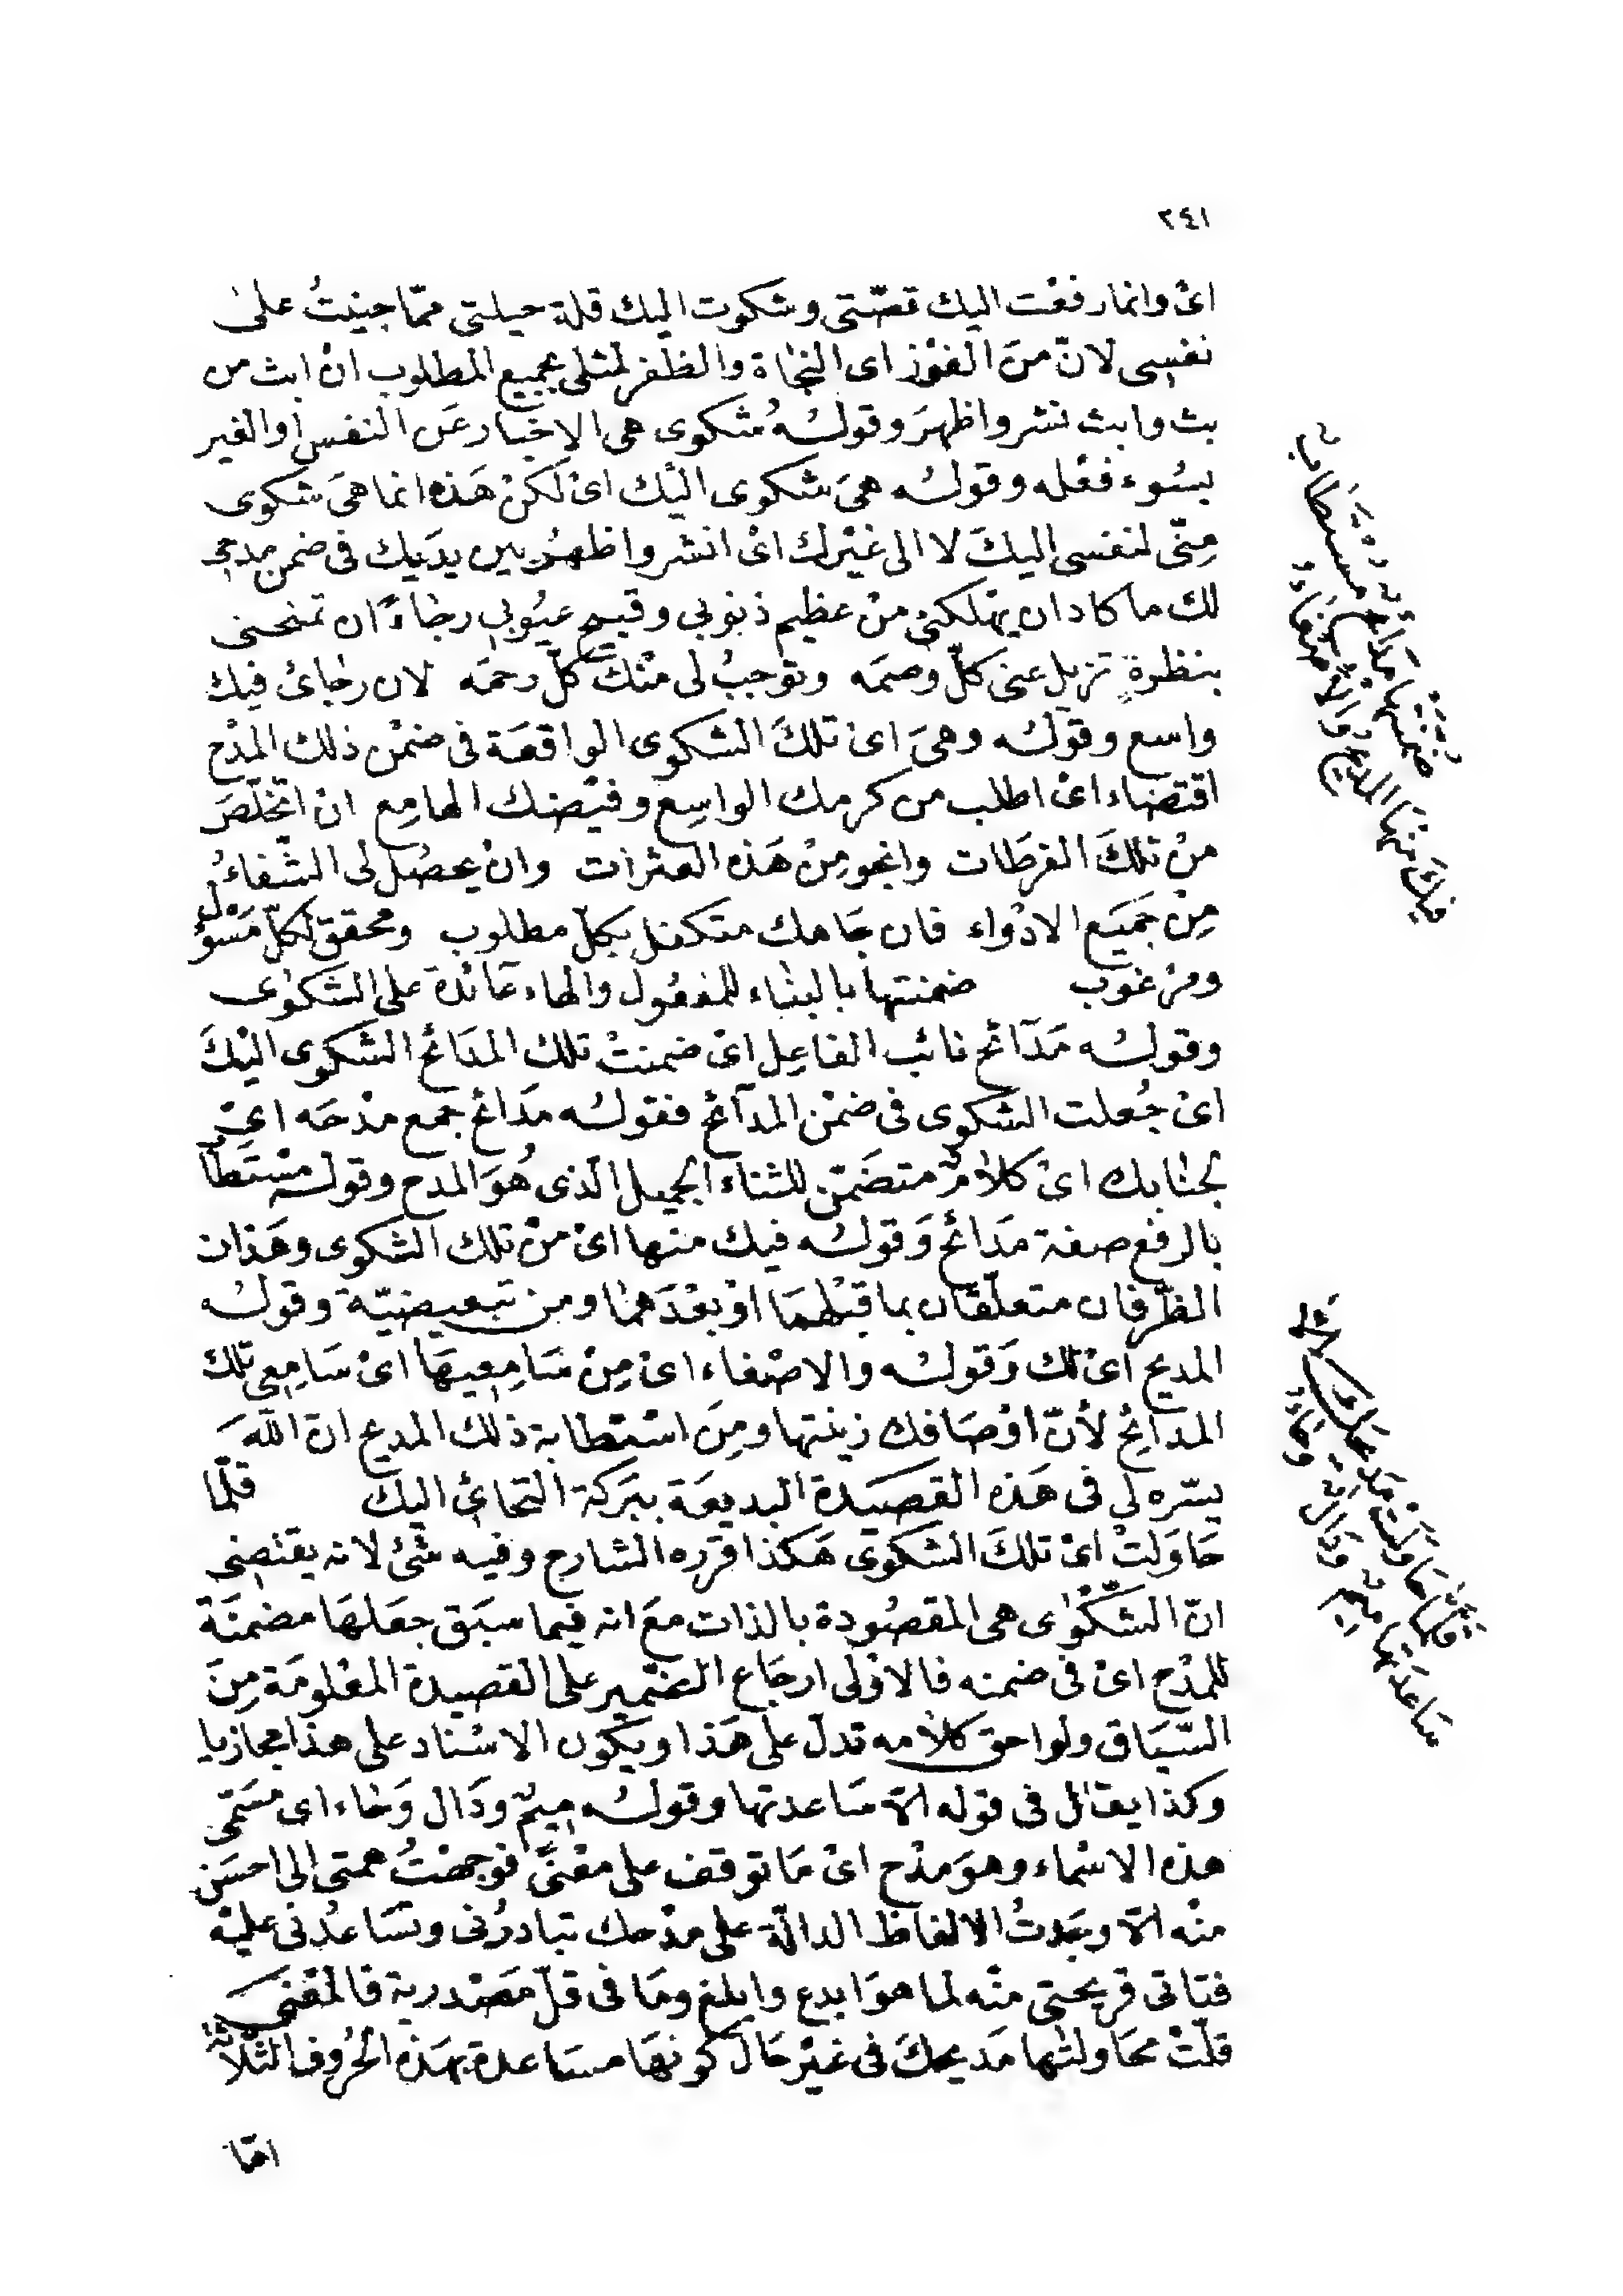 ٢٤١
اىْ وانما رفعْت اليك قصّتى وشكوت اليك قلة حيلتى ممّا جنيتُ على
نفسِى لانّ منَ الفوْز اى النجاة والظفر لمثلى بجميع المطلوب انْ ابث من
بث وابث نشر واظهرَ وقولُه شكوى هى الاخبار عَن النفس او الغير
بسُوء فعْله وقولُه هىَ شكوى اليْك اىْ لكنْ هَذه انما هىَ شكوى
مِنّى لنفسى اليكَ لا الى غيْرك اىْ انشر واظهرُ بين يدَيك فى ضمن مدحى
لك ما كاد ان يهْلكنى منْ عظيم ذنوبى وقبيح عيُوبى رجاءً ان تمنحنى
بنظرةٍ تزيل عنى كلّ وصمَه وتوجبُ لى منْك كلّ رحمَه لان رجائ فيك
واسع وقولُه وهىَ اىْ تلكَ الشكوى الواقعَة فى ضمْن ذلك المدْح
اقتضاء اىْ اطلب من كرمك الواسِع وفيْضك الهامِع انْ اتخلّصَ
منْ تلكَ الفرطَات وانجو مِنْ هَذه العثرات وانْ يحصُل لى الشّفاءُ
مِنْ جَميَع الادْواء فان جَاهك متكفل بكلّ مطلوب ومحقق لكلّ مَسْؤل
ومرْغوب ضمنتها بالبناء للمفعُول والهاء عَائدة على الشكوى
وقولُه مَدَآئح نائب الفاعِل اىْ ضمنتْ تلك المدَائح الشكوى اليْكَ
اىْ جُعلت الشكوى فى ضمْن المدآئح فقولُه مدَائح جمع مدْحَه اىْ
لجنابك اىْ كلامٌ متضَمّن للثناء الجميل الّذى هُوَ المدح وقوله مسْتَطابٌ
بالرفع صفة مدَائح وَقولُه فيك منها اىْ منْ تلك الشكوى وهَذان
الظّرفان متعلّقان بما قبْلهمَا اوْ بعْدَهمَا ومن تبعيضيّة وقولُه
المديح اىْ لك وَقولُه والاصْغاء اىْ مِنْ سَامِعيهَا اىْ سَامِعِى تلك
المدآئِح لأنّ اوْصَافك زينتها ومِنَ اسْتطابة ذلك المديح انّ اللّهَ
يسّره لى فى هَذه القصيَدة البديعَة ببَركة التجائ اليك قلّما
حَاوَلتْ اىْ تلكَ الشكوى هَكذا قرّره الشارح وفيه شئ لانه يقتضى
انّ الشّكْوٰى هى المقصُودة بالذات معَ انه فيما سبَق جعَلهَا مضمنَة
للمدْح اىْ فى ضمنه فالاوْلى ارجَاع الضّمير على القصيدة المعْلومَة مِنَ
السّيَاق ولواحق كلامه تدلّ على هَذا ويكون الاسْناد على هذا مجازيا
وكذا يقال فى قوله الّا سَاعدتها وقولُه ميمٌ ودَال وَحَاء اى مسَمّى
هذه الاسْماء وهوَ مدْح اىْ مَا توقف على معْنًى فوجهْتُ همتى الى احسَن
منْه الّا وجَدتُ الالفاظ الدالّة على مدْحك تبادرُنى وتسَاعدُنى عليْه
فتاتى قريحتى منْه لما هوَ ابدع وابلغ ومَا فى قلّ مَصْدرية فالمعْنى
قلّتْ محَاولتها مَديحكَ فى غيْر حَال كونهَا مسَاعدة بهَذه الحُروف الثلاثة
امّا
ضُمّنَتْها مَدَائحٌ مُسْتَطَابٌ
فيكَ منهَا المديحُ والاصْغَاءُ
قلّما حَاوَلَتْ مَديحَكَ الّا
سَاعدَتها ميمٌ ودَالٌ وحَاءُ